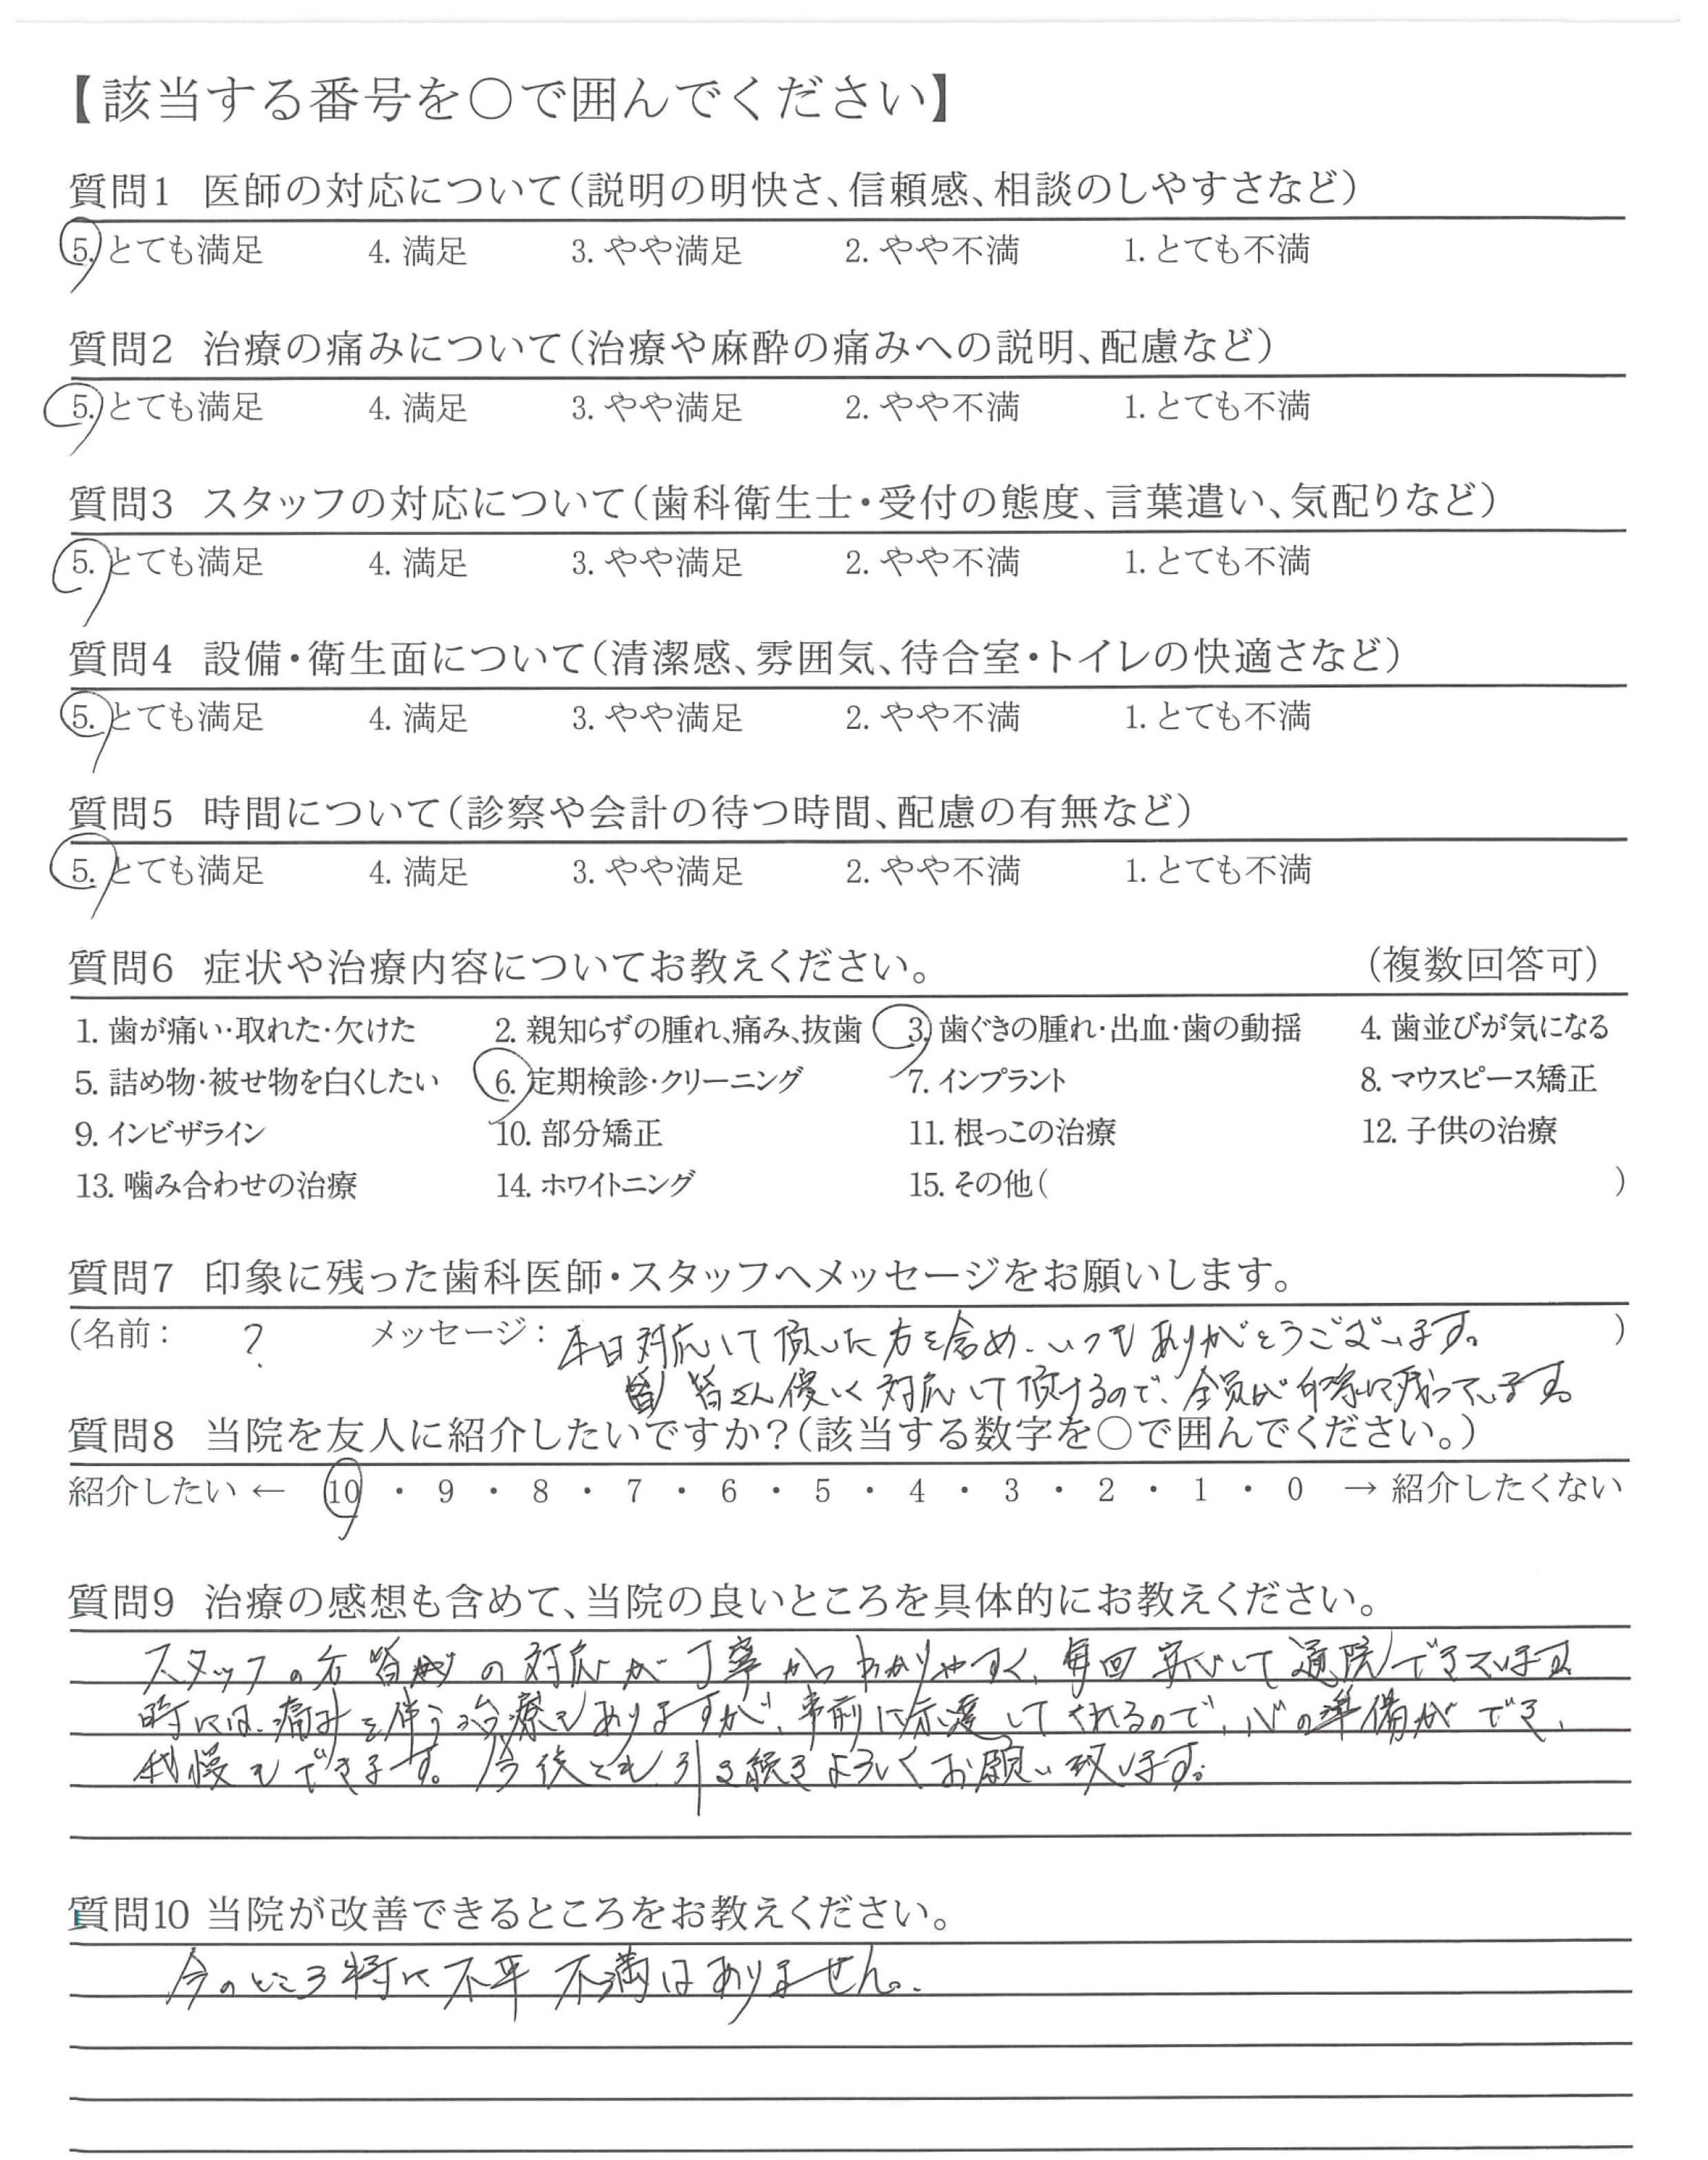 【該当する番号を○で囲んでください】
質問1 医師の対応について(説明の明快さ、信頼感、相談のしやすさなど)
5. とても満足 4. 満足 3. やや満足 2. やや不満 1. とても不満
質問2 治療の痛みについて(治療や麻酔の痛みへの説明、配慮など)
5. とても満足 4. 満足 3. やや満足 2. やや不満 1. とても不満
質問3 スタッフの対応について(歯科衛生士・受付の態度、言葉遣い、気配りなど)
5. とても満足 4. 満足 3. やや満足 2. やや不満 1. とても不満
質問4 設備・衛生面について(清潔感、雰囲気、待合室・トイレの快適さなど)
5. とても満足 4. 満足 3. やや満足 2. やや不満 1. とても不満
質問5 時間について(診察や会計の待つ時間、配慮の有無など)
5. とても満足 4. 満足 3. やや満足 2. やや不満 1. とても不満
質問6 症状や治療内容についてお教えください。 (複数回答可)
1. 歯が痛い・取れた・欠けた 2. 親知らずの腫れ、痛み、抜歯 3. 歯ぐきの腫れ・出血・歯の動揺 4. 歯並びが気になる
5. 詰め物・被せ物を白くしたい 6. 定期検診・クリーニング 7. インプラント 8. マウスピース矯正
9. インビザライン 10. 部分矯正 11. 根っこの治療 12. 子供の治療
13. 噛み合わせの治療 14. ホワイトニング 15. その他( )
質問7 印象に残った歯科医師・スタッフへメッセージをお願いします。
(名前: ? メッセージ: 本日対応して頂いた方を含め、いつもありがとうございます。 )
皆さん優しく対応して頂けるので、全員が印象に残っています。
質問8 当院を友人に紹介したいですか?(該当する数字を○で囲んでください。)
紹介したい ← 10 ・ 9 ・ 8 ・ 7 ・ 6 ・ 5 ・ 4 ・ 3 ・ 2 ・ 1 ・ 0 → 紹介したくない
質問9 治療の感想も含めて、当院の良いところを具体的にお教えください。
スタッフの方皆の対応が丁寧かつわかりやすく、毎回安心して通院できています
時には、痛みを伴う治療もありますが、事前に示達してくれるので、心の準備ができ、
我慢もできます。今後とも引き続きよろしくお願い致します。
質問10 当院が改善できるところをお教えください。
今のところ特に不平不満はありません。